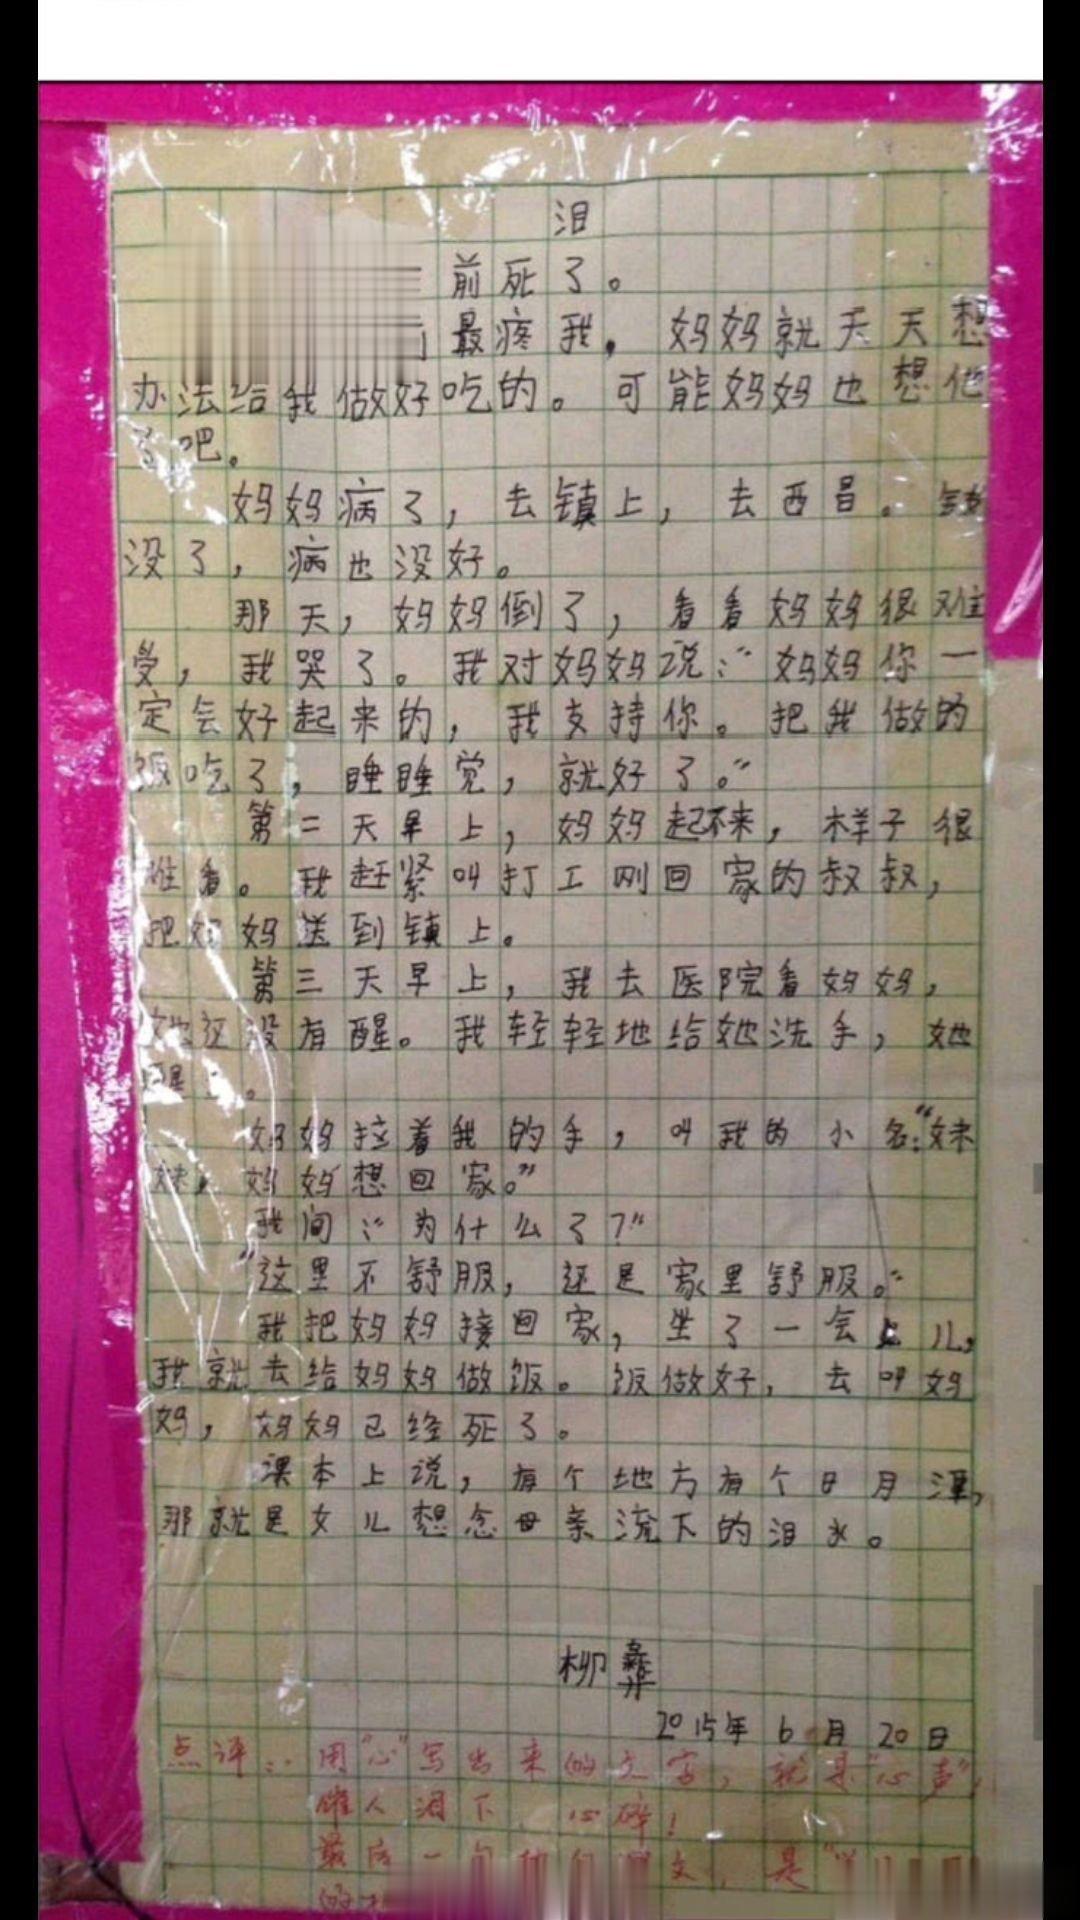 泪
前死了。
最疼我，妈妈就天天想
办法给我做好吃的。可能妈妈也想他
了吧。
妈妈病了，去镇上，去西昌。钱
没了，病也没好。
那天，妈妈倒了，看看妈妈很难
受，我哭了。我对妈妈说：“妈妈你一
定会好起来的，我支持你。把我做的
饭吃了，睡睡觉，就好了。”
第二天早上，妈妈起不来，样子很
难看。我赶紧叫打工刚回家的叔叔，
把妈妈送到镇上。
第三天早上，我去医院看妈妈，
她还没有醒。我轻轻地给她洗手，她
醒了。
妈妈拉着我的手，叫我的小名：“妹
妹，妈妈想回家。”
我问：“为什么了？”
“这里不舒服，还是家里舒服。”
我把妈妈接回家，坐了一会儿，
我就去给妈妈做饭。饭做好，去叫妈
妈，妈妈已经死了。
课本上说，有个地方有个日月潭，
那就是女儿想念母亲流下的泪水。
柳彝
2015年6月20日
点评：用“心”写出来的文字，就是“心声”，
催人泪下 心碎！
最后一句 文，是
的